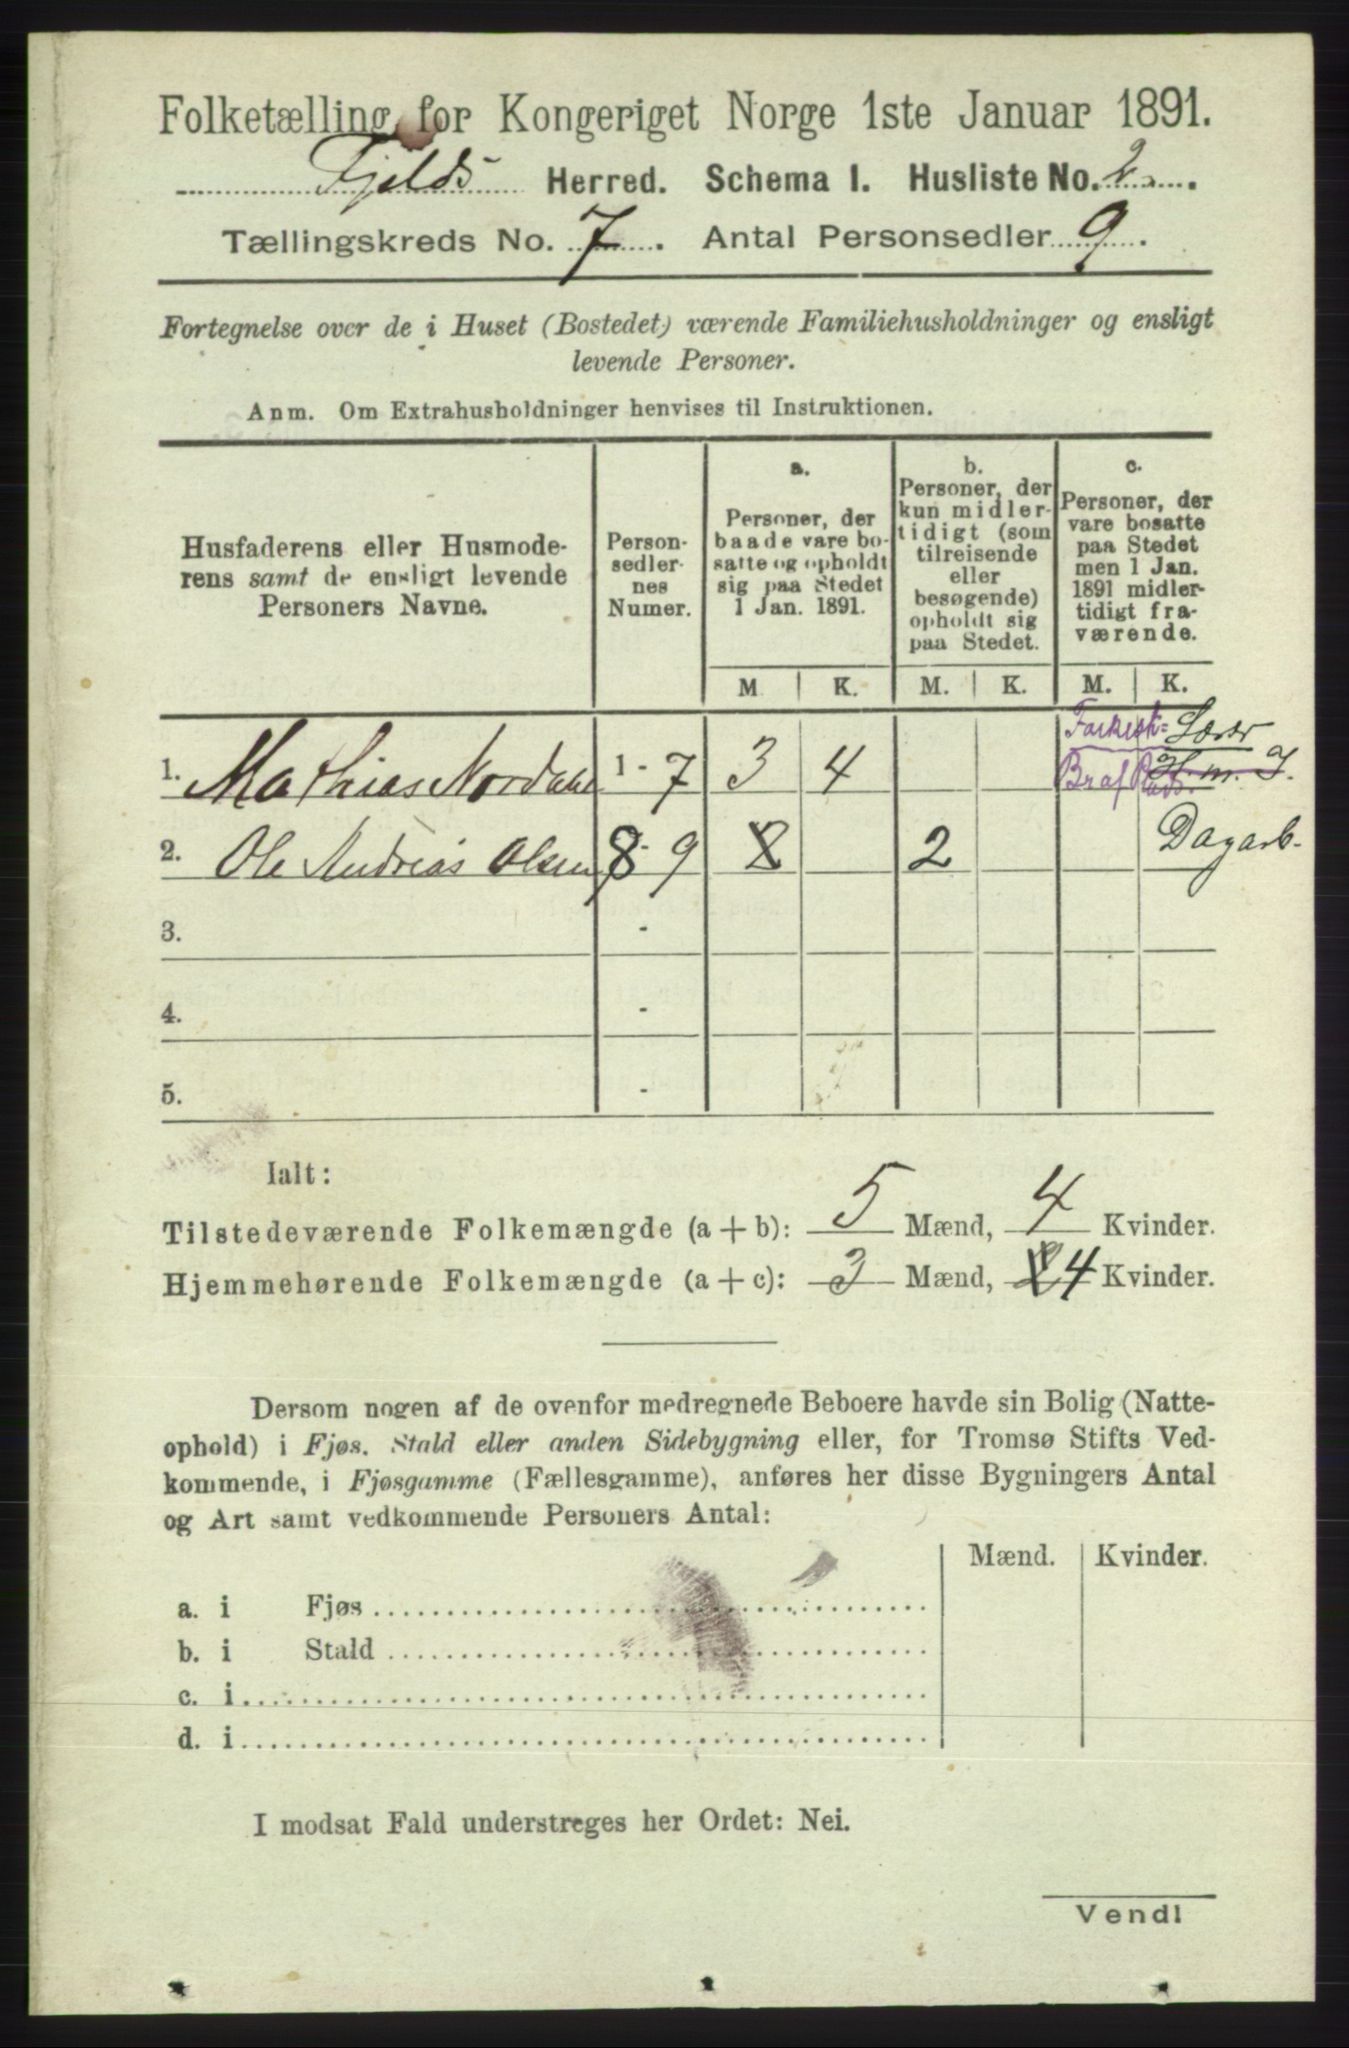 Folketælling for Kongeriget Norge 1ste Januar 1891.
Fjelds Herred. Schema I. Husliste No. 2.
Tællingskreds No. 7. Antal Personsedler 9.
Fortegnelse over de i Huset (Bostedet) værende Familiehusholdninger og ensligt
levende Personer.
Anm. Om Extrahusholdninger henvises til Instruktionen.
Husfaderens eller Husmode-
rens samt de ensligt levende
Personers Navne.
Person-
sedler-
nes
Numer.
a.
Personer, der
baade vare bo-
satte og opholdt
sig paa Stedet
1 Jan. 1891.
b.
Personer, der
kun midler-
tidigt (som
tilreisende
eller
besøgende)
opholdt sig
paa Stedet.
c.
Personer, der
vare bosatte
paa Stedet
men 1 Jan.
1891 midler-
tidigt fra-
værende.
M K. M. K. M. K.
1. Mathias Nordahl 1 - 7 3 4 Lærer
H. m. J.
2. Ole Andreas Olsen 8 - 9 2 Dagarb.
3. -
4. -
5. -
Ialt:
Tilstedeværende Folkemængde (a + b): 5 Mænd, 4 Kvinder.
Hjemmehørende Folkemængde (a + c): 3 Mænd, 4 Kvinder.
Dersom nogen af de ovenfor medregnede Beboere havde sin Bolig (Natte-
ophold) i Fjøs, Stald eller anden Sidebygning eller, for Tromsø Stifts Ved-
kommende, i Fjøsgamme (Fællesgamme), anføres her disse Bygningers Antal
og Art samt vedkommende Personers Antal:
Mænd. Kvinder.
a. i Fjøs
b. i Stald
c. i
d. i
I modsat Fald understreges her Ordet: Nei.
Vend!